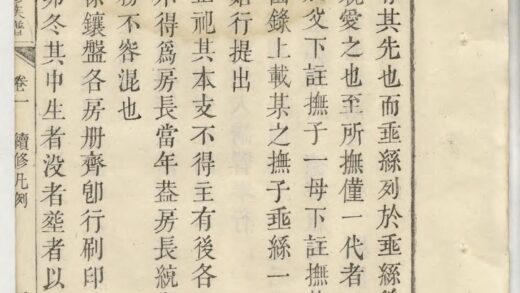 其先也而埀絲列於埀絲
親愛之也至所撫僅一代者
父下註撫子一母下註撫
圖錄上載某之撫子埀絲一
始行提出
主祀其本支不得主有後各
不得爲房長當年葢房長統
務不容混也
係鑲盤各房册齊卽行刷印
卯冬其中生者没者塟者以
卷一
續修凡例